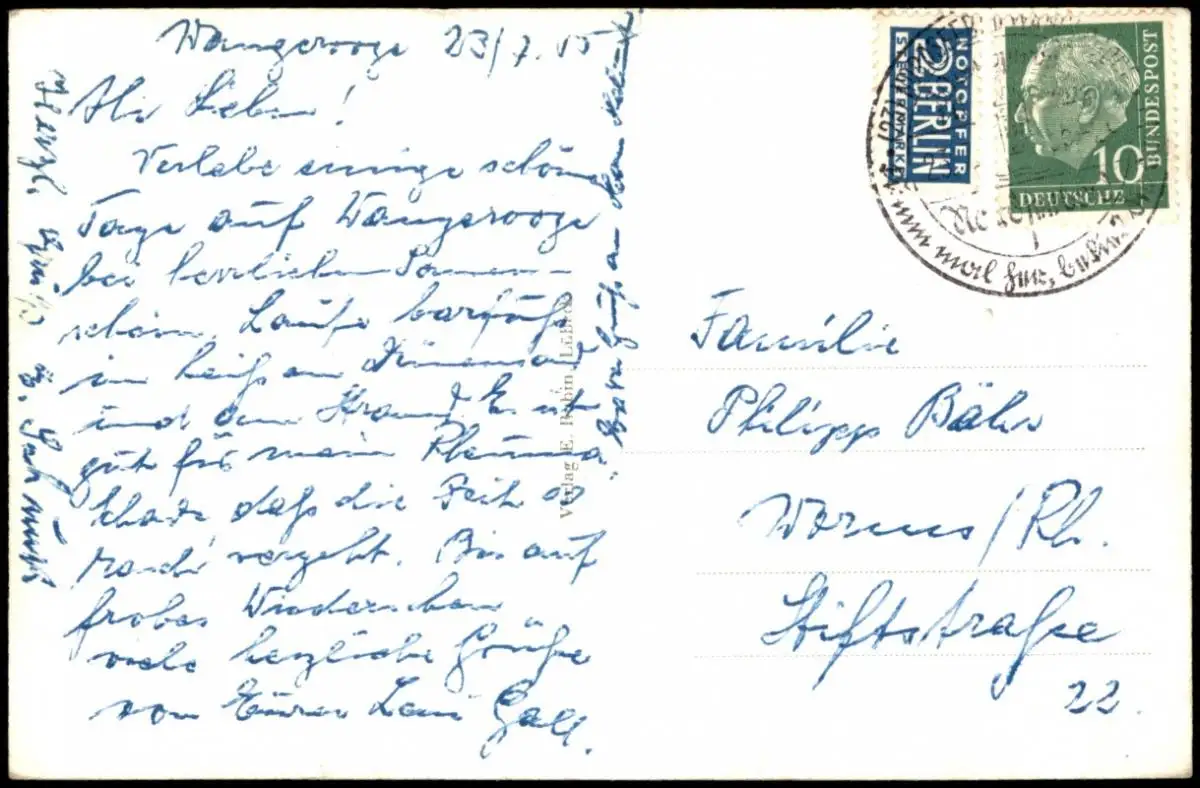 Wangerooge 23/7.55
Ihr Lieben!
Verlebe einige schöne
Tage auf Wangerooge
bei herrlichem Sonnen-
schein. Laufe barfuß
im heißen Dünensand
und am Strand. Es ist
gut für mein Rheuma
schade, daß die Zeit so
rasch vergeht. Bis auf
frohes Wiedersehen
viele herzliche Grüße
von Eurer Leni Gall.
Herzl. Grüße
Verlag E. Rubin, Lübeck
NOTOPFER
2 BERLIN
STEUERMARKE
10
DEUTSCHE
BUNDESPOST
Familie
Philipp Bähr
Worms/Rh.
Stiftstraße
22.